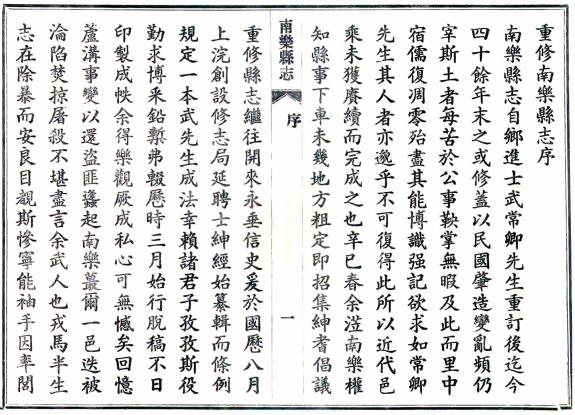 重修南樂縣志序
南樂縣志自鄉進士武常卿先生重訂後迄今
四十餘年未之或修蓋以民國肇造變亂頻仍
宰斯土者每苦於公事鞅掌無暇及此而里中
宿儒復凋零殆盡其能博識强記欲求如常卿
先生其人者亦邈乎不可復得此所以近代邑
乘未獲賡續而完成之也辛巳春余蒞南樂權
知縣事下車未幾地方粗定即招集紳耆倡議
南樂縣志
序
一
重修縣志繼往開來永垂信史爰於國曆八月
上浣創設修志局延聘士紳經始纂輯而條例
規定一本武先生成法幸賴諸君子孜孜斯役
勤求博釆鉛槧弗輟歷時三月始行脫稿不日
印製成帙余得樂觀厥成私心可無憾矣回憶
蘆溝事變以還盜匪蠭起南樂蕞爾一邑迭被
淪陷焚掠屠殺不堪盡言余武人也戎馬半生
志在除暴而安良目覩斯慘寧能袖手因率閤